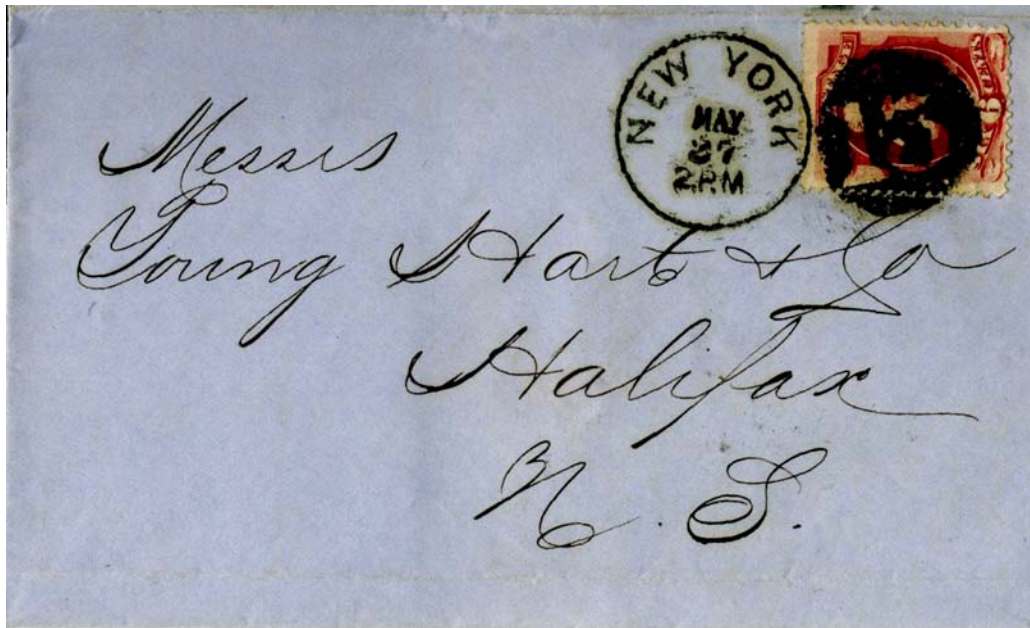 NEW YORK
MAY
27
2PM
Messrs
Young Hart & Co
Halifax
N. S.